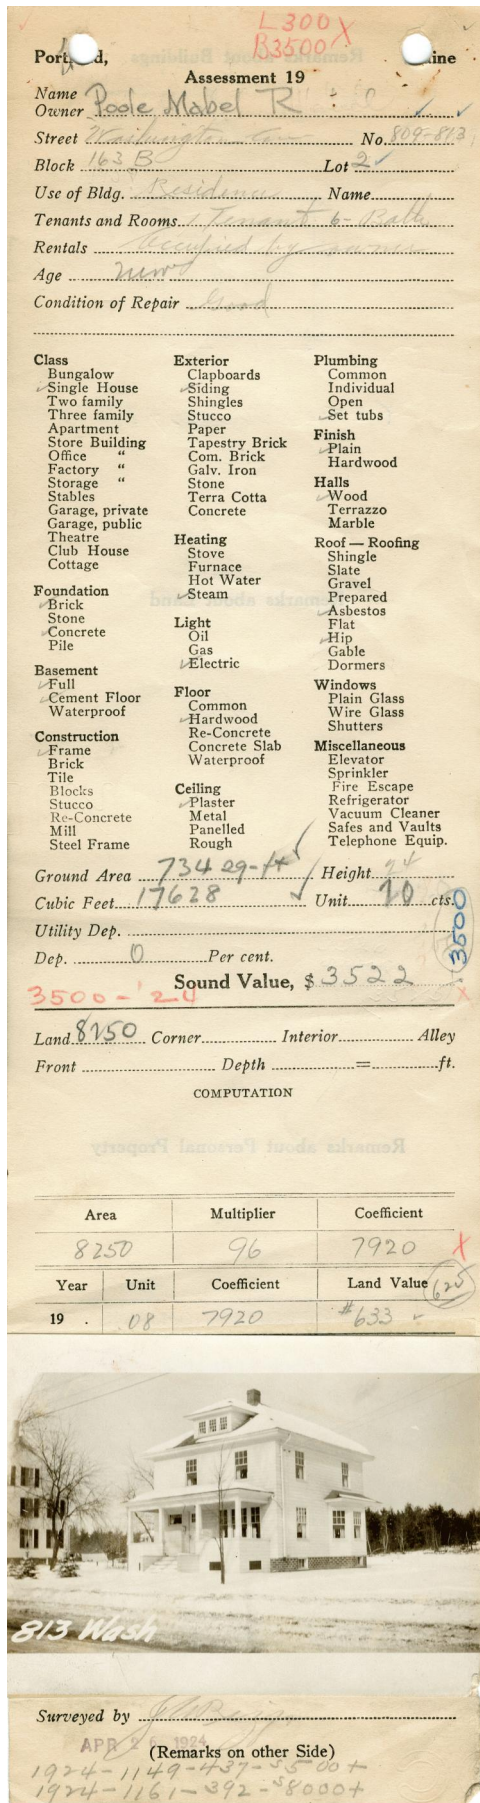 L300 X
B3500
Portland, Maine
Assessment 19
Name
Owner Poole Mabel R
Street Washington Ave No. 809-813
Block 163 B Lot 2
Use of Bldg. Residence Name
Tenants and Rooms 1 Tenant 6- Bath
Rentals Occupied by owner
Age new
Condition of Repair Good
Class
Bungalow
✓Single House
Two family
Three family
Apartment
Store Building
Office "
Factory "
Storage "
Stables
Garage, private
Garage, public
Theatre
Club House
Cottage
Foundation
✓Brick
Stone
✓Concrete
Pile
Basement
✓Full
✓Cement Floor
Waterproof
Construction
✓Frame
Brick
Tile
Blocks
Stucco
Re-Concrete
Mill
Steel Frame
Exterior
Clapboards
✓Siding
Shingles
Stucco
Paper
Tapestry Brick
Com. Brick
Galv. Iron
Stone
Terra Cotta
Concrete
Heating
Stove
Furnace
Hot Water
✓Steam
Light
Oil
Gas
✓Electric
Floor
Common
✓Hardwood
Re-Concrete
Concrete Slab
Waterproof
Ceiling
✓Plaster
Metal
Panelled
Rough
Plumbing
Common
Individual
Open
✓Set tubs
Finish
✓Plain
Hardwood
Halls
✓Wood
Terrazzo
Marble
Roof — Roofing
Shingle
Slate
Gravel
Prepared
✓Asbestos
Flat
✓Hip
Gable
Dormers
Windows
Plain Glass
Wire Glass
Shutters
Miscellaneous
Elevator
Sprinkler
Fire Escape
Refrigerator
Vacuum Cleaner
Safes and Vaults
Telephone Equip.
Ground Area 734 sq-ft ✓ Height 24
Cubic Feet 17628 ✓ Unit 20 cts.
Utility Dep.
3500
Dep. 0 Per cent.
Sound Value, $ 3522
3500-'24 X
Land 8250 Corner Interior Alley
Front Depth = ft.
COMPUTATION
Remarks about Personal Property
Area Multiplier Coefficient
8250 96 7920 X
Year Unit Coefficient Land Value 625
19 . 08 7920 #633
813 Wash
Surveyed by
APR 26 1924
(Remarks on other Side)
1924-1149-437-$500+
1924-1161-392-$8000+